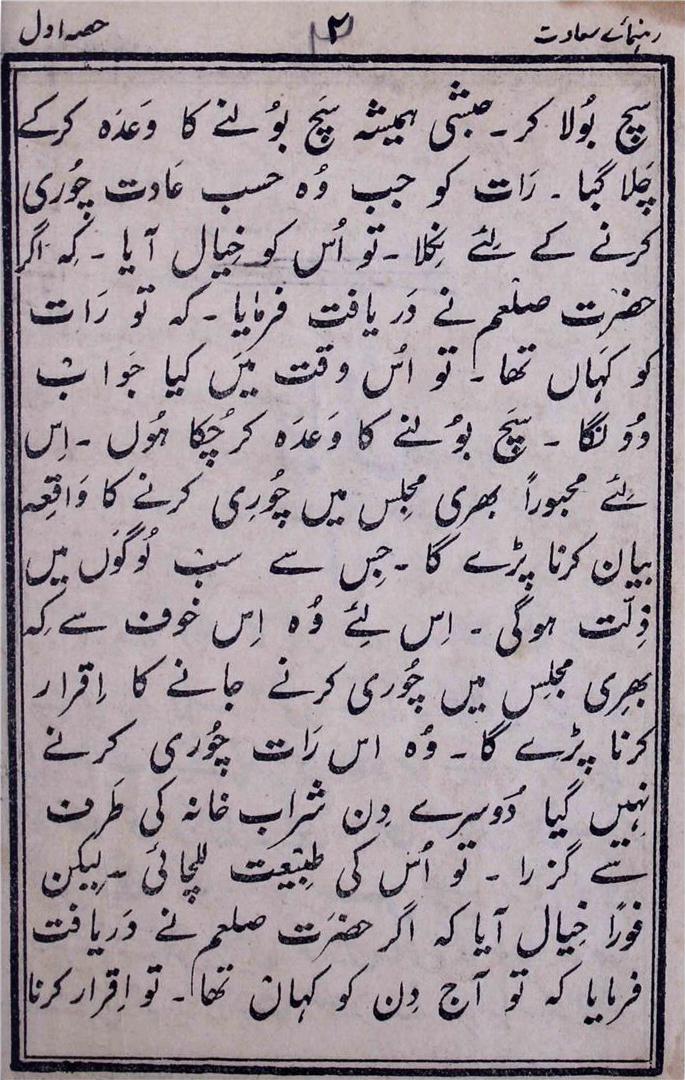 رہنمائے سعادت ۲ حصہ اول
سچ بُولا کر۔ حبشی ہمیشہ سَچ بوُلنے کا وَعدَہ کرکے
چَلا گیا۔ رَات کو جب وُہ حسب عَادت چوُری
کرنے کے لِئے نِکلا۔ تو اُس کو خِیال آیا۔ کِہ اگر
حضرت صلعم نے دَریافت فرمایا۔ کہ تو رَات
کو کہَاں تھا۔ تو اُس وقت میَں کیا جَواب
دوُونگا۔ سَچ بوُلنے کا وَعدَہ کر چُکا ہُوں۔ اِس
لِئے مجبوراً بھری مجِلس میں چوُرِی کرنے کا وَاقِعہ
بیان کرنا پڑے گا۔ جِس سے سب لُوگوَں میں
ذِلّت ہوگی۔ اِس لِئے وُہ اِس خوف سے کِہ
بھِری مجلِس میں چوُری کرنے جانے کا اِقرار
کرنا پڑے گا۔ وُہ اس رَات چوُری کرنے
نہِیں گیا دُوسرے دِن شراب خانہ کی طَرف
سے گزرا۔ تو اُس کی طبِیَعت للچائی۔ لیِکن
فورًا خِیال آیا کہ اگر حضرَت صلعم نے دَریافت
فرمایا کہ تو آج دِن کو کہاں تھا۔ تو اِقرار کرنا